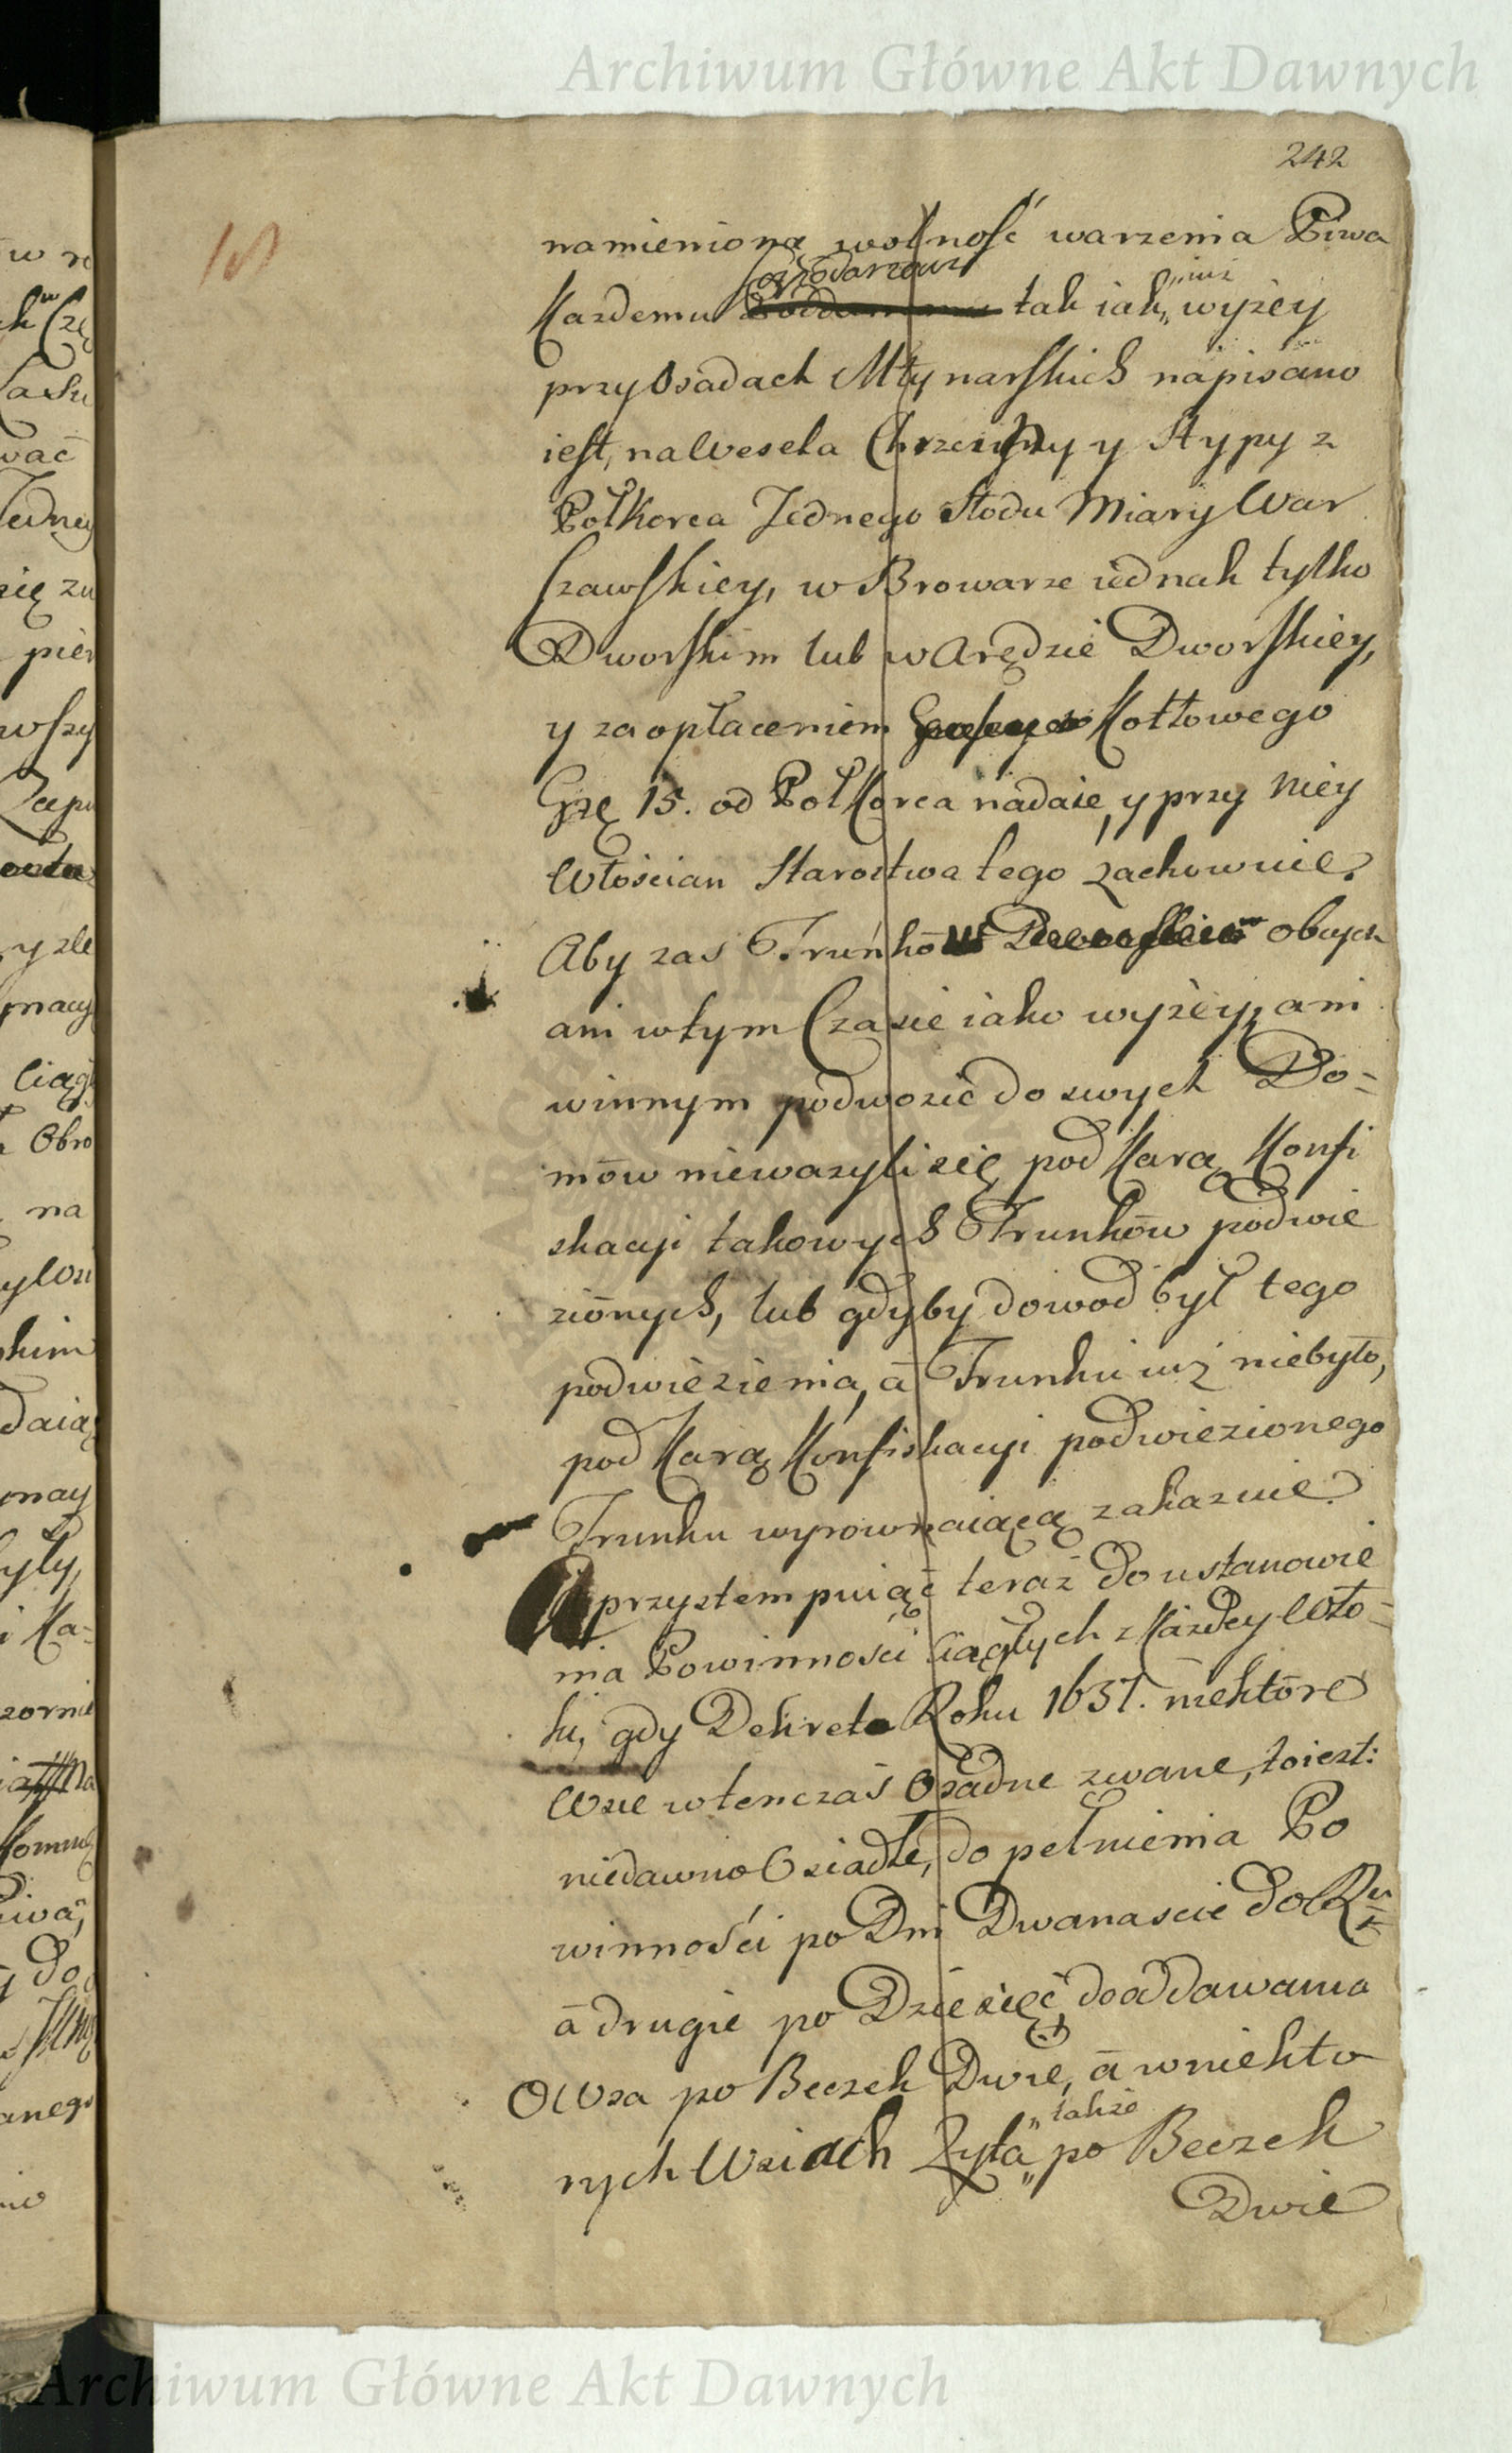 Archiwum Główne Akt Dawnych
242
namieniona wolność warzenia Piwa
Gospodarzowi
Kazdemu tak iak „iuż wyżey
przy Osadach Młynarskich napisano
iest, na Wesela Chrzciny y Stypy z
Połkorca Jednego Słodu Miary War
szawskiey, w Browarze iednak tylko
Dworskim lub w Arędzie Dworskiey,
y za opłaceniem Kotłowego
Grę 15. od Połkorca nadaie, y przy niey
Włościan Starostwa tego zachowuie.
Aby zas Trunków obcych
ani w tym Czasie iako wyżey, ani
winnym podwozić do swych Do=
mów niewazyli się pod Karą Konfi
skacyi takowych Trunków podwie
zionych, lub gdyby dowod był tego
podwiezienia, a Trunku iuż niebyło,
pod Karą Konfiskacyi podwiezionego
Trunku wyrownaiącą zakazuie.
A przystempuiąc teraz do ustanowie
nia Powinności Ciągłych z Każdey Wło=
ki, gdy Dekreta Roku 1637. niektóre
Wsie wtenczas Osadne zwane, to iest:
niedawno Osiadłe, do pełnienia Po
winności po Dni Dwanascie do Rku
a drugie po Dziesięć, do oddawania
Owsa po Beczek Dwie, a w niekto
rych Wsiach Żyta „także po Beczek
Dwie
Archiwum Główne Akt Dawnych